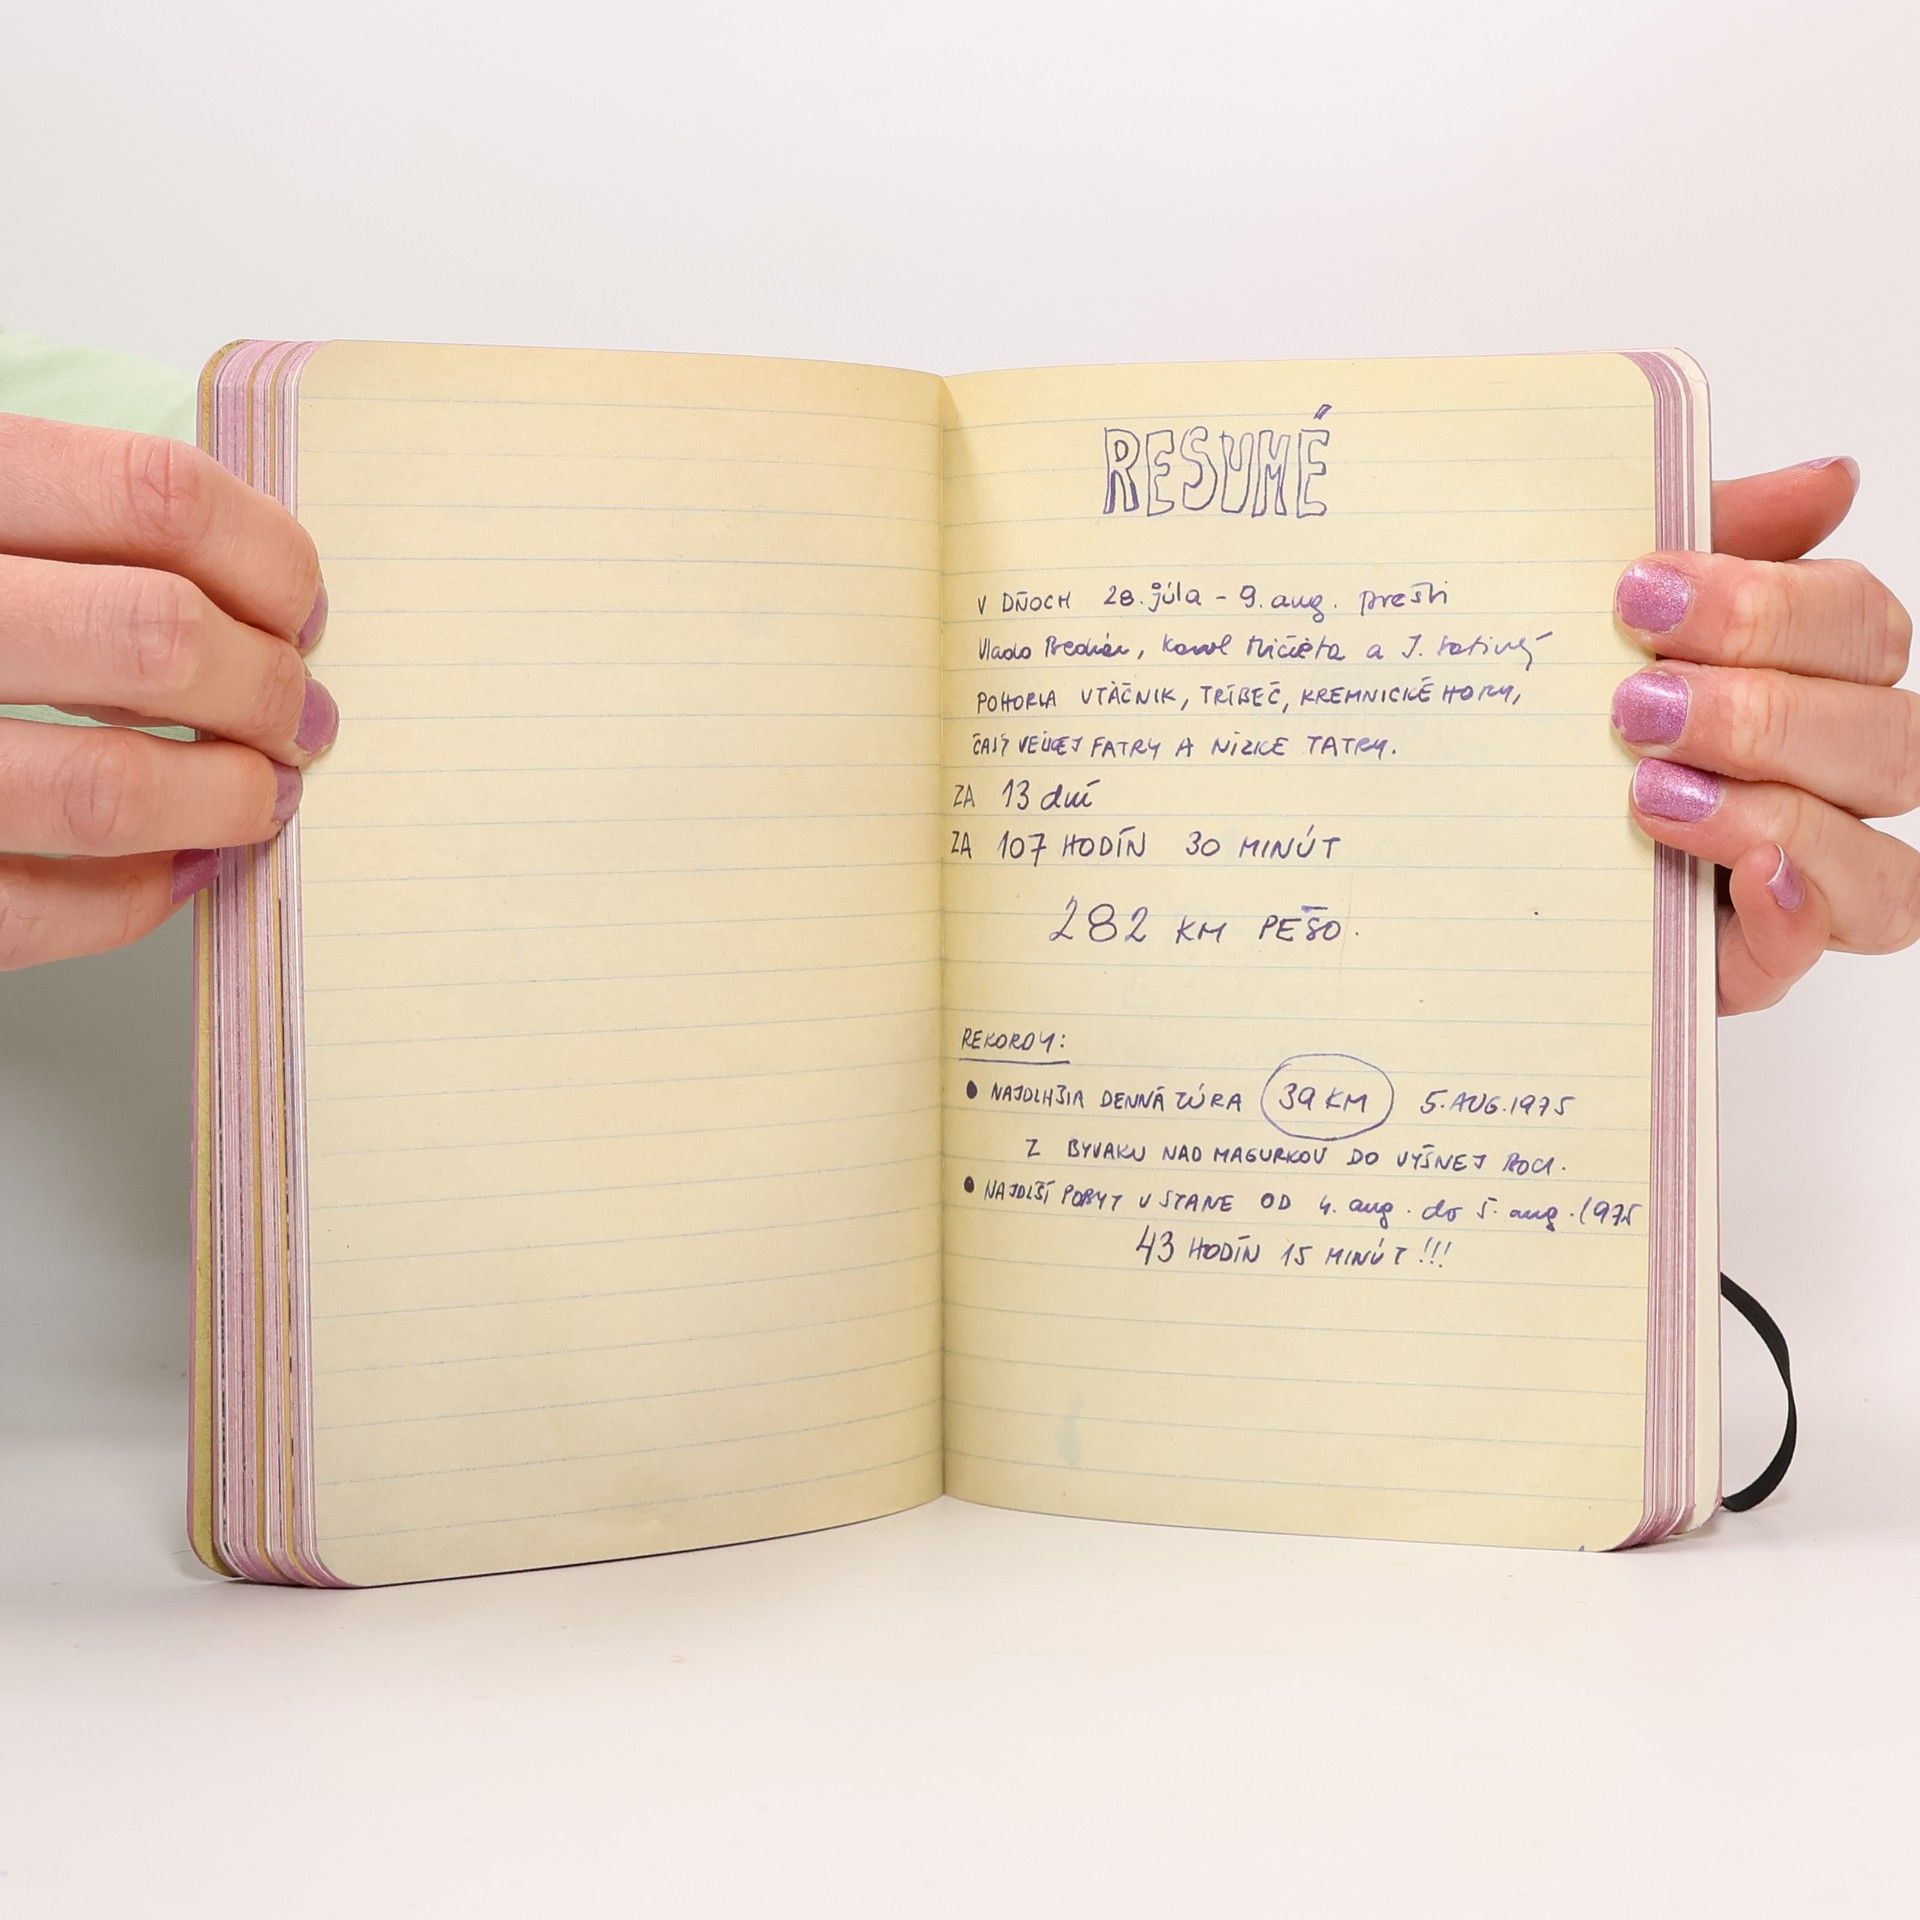 RESUMÉ
V DŇOCH 28. júla - 9. aug. prešli
Vlado Karol Mičieta a J.
POHORIA VTÁČNIK, TRÍBEČ, KREMNICKÉ HORY,
ČASŤ VEĽKEJ FATRY A NÍZKE TATRY.
ZA 13 dní
ZA 107 HODÍN 30 MINÚT
282 KM PEŠO.
REKORDY:
● NAJDLHŠIA DENNÁ TÚRA 39 KM 5. AUG. 1975
Z BYVAKU NAD MAGURKOU DO VYŠNEJ BOCI.
● NAJDLŠÍ POBYT V STANE OD 4. aug. do 5. aug. 1975
43 HODÍN 15 MINÚT!!!